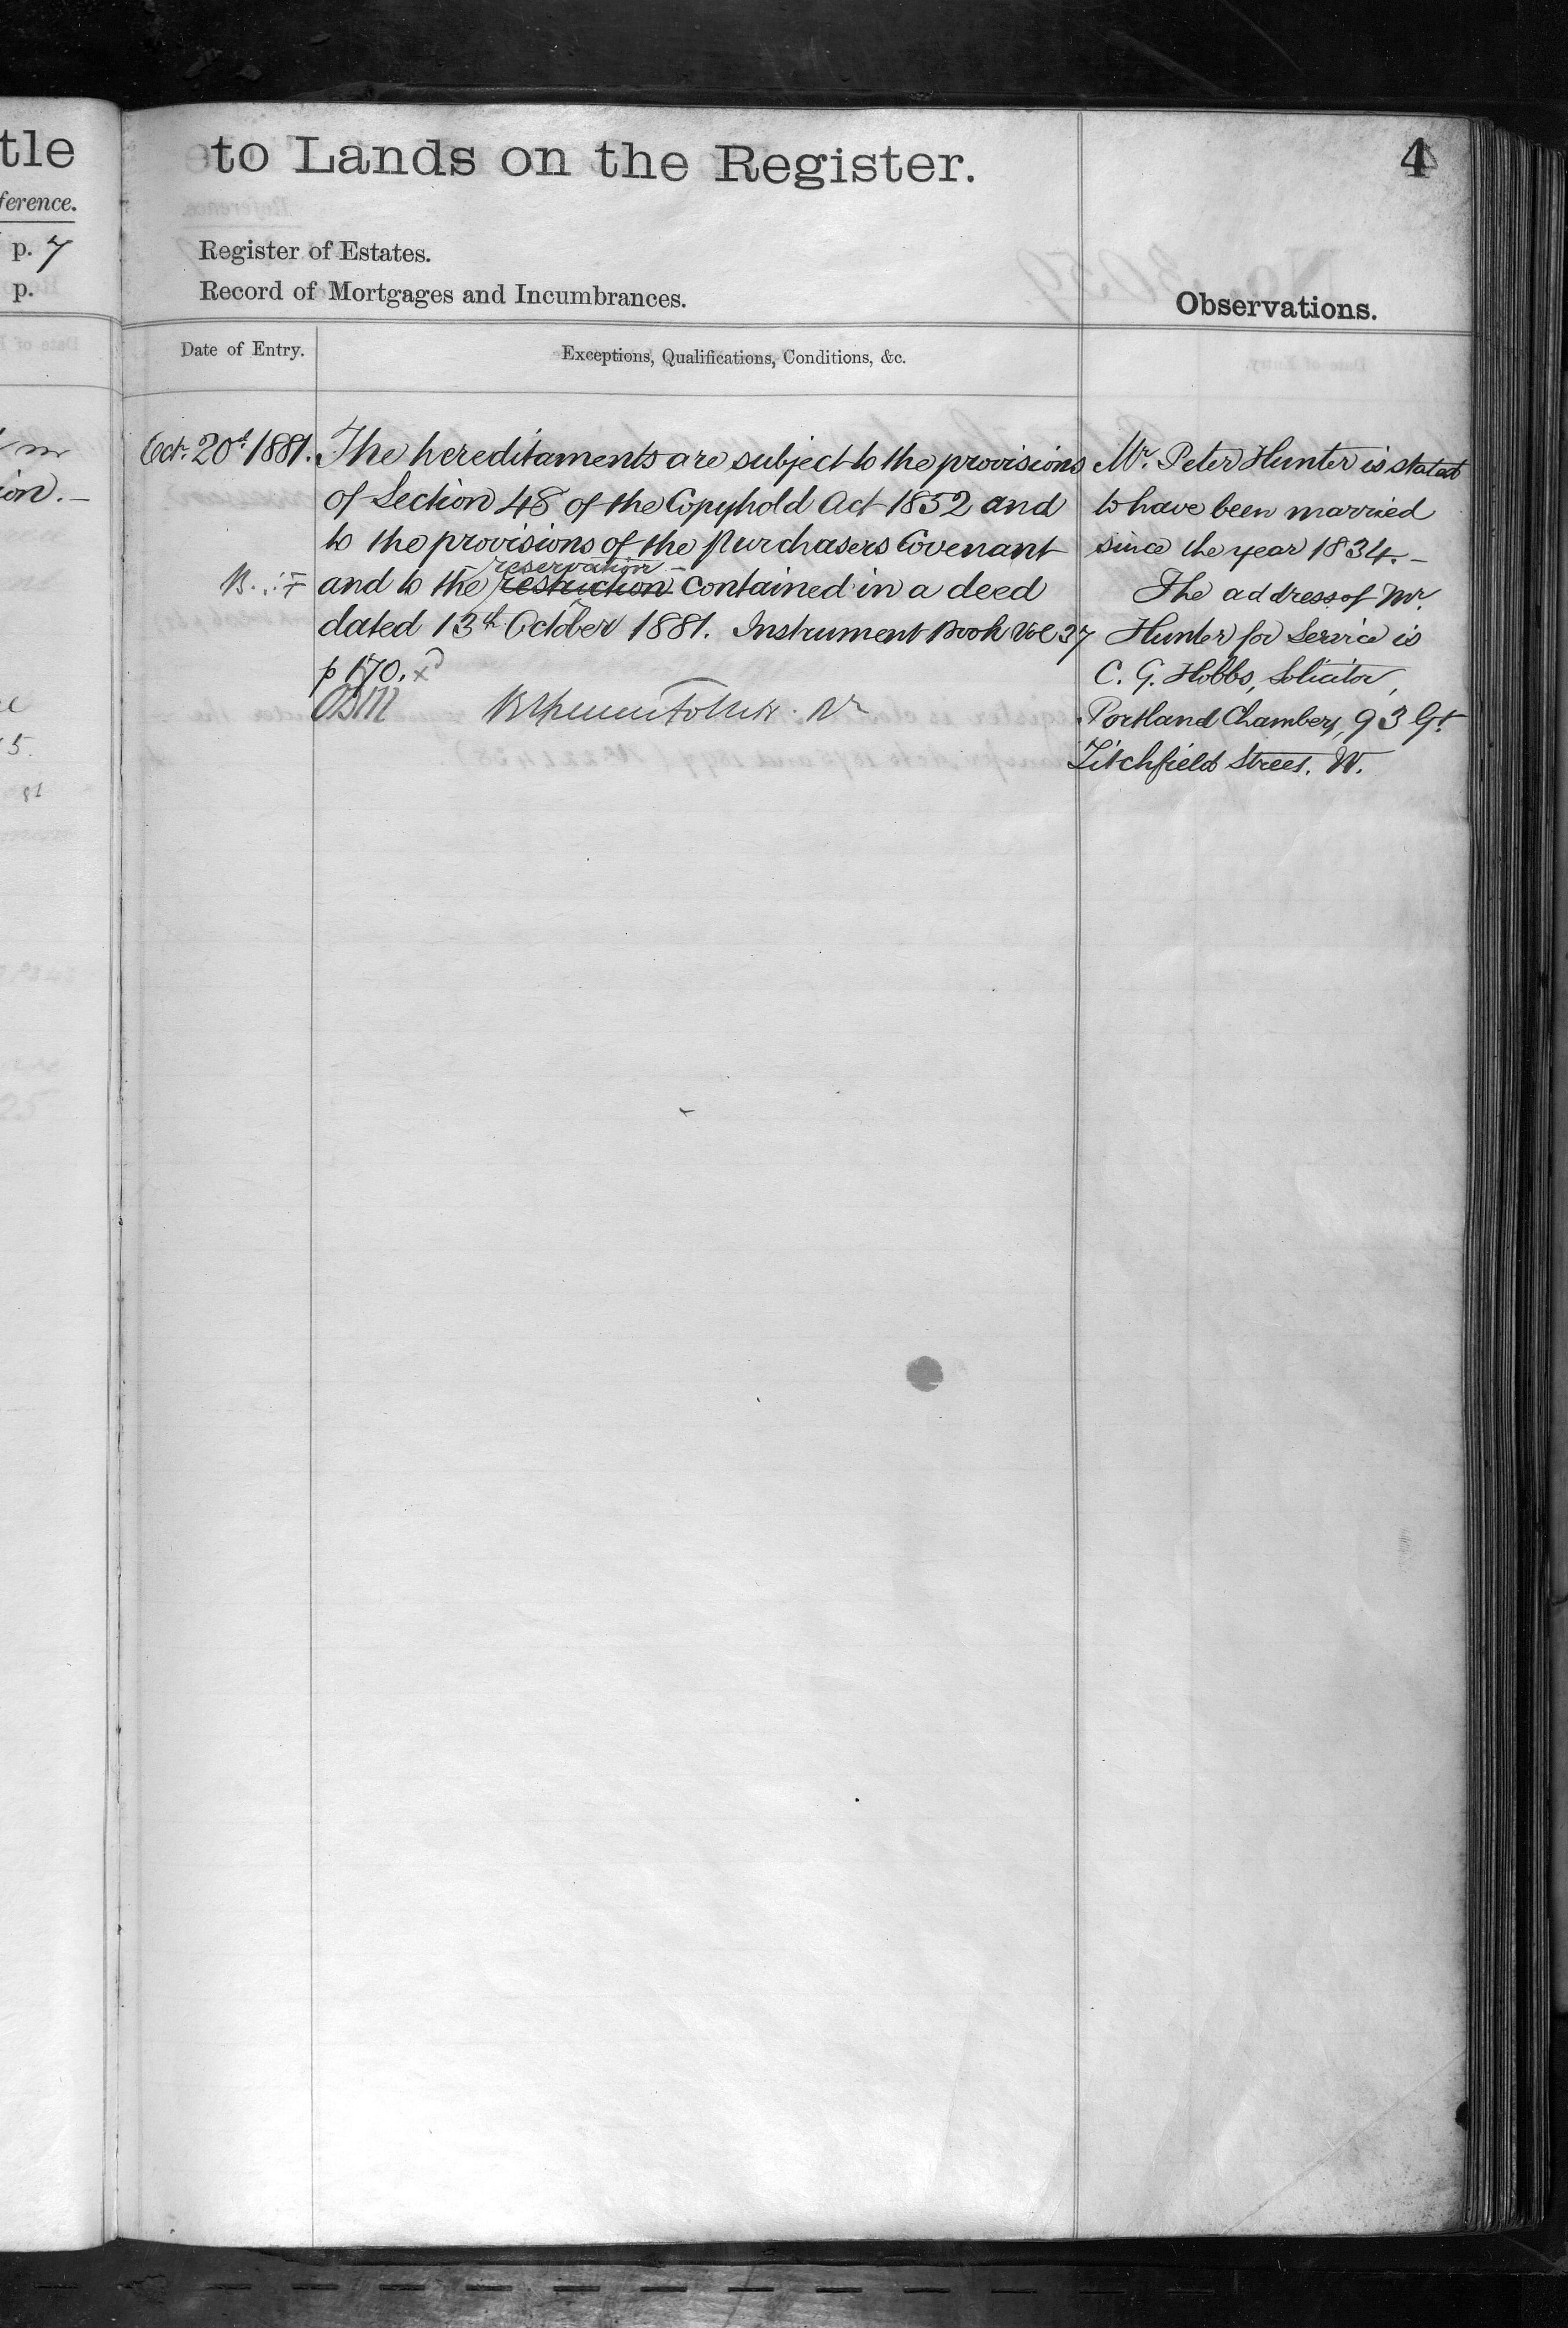 tle
ference.
p. 7
p.
ion. –
to Lands on the Register.
4
Register of Estates.
Record of Mortgages and Incumbrances.
Observations.
Date of Entry.
Exceptions, Qualifications, Conditions, &c.
Oct. 20th 1881.
The hereditaments are subject to the provisions
of Section 48 of the Copyhold Act 1852 and
to the provisions of the Purchasers Covenant
reservation –
and to the restriction contained in a deed
dated 13th October 1881. Instrument Book Vol 37
p 170.
Mr. Peter Hunter is stated
to have been married
since the year 1834. –
The address of Mr.
Hunter for Service is
C. G. Hobbs, Solicitor,
Portland Chambers, 93 Gt
Titchfield Street. W.